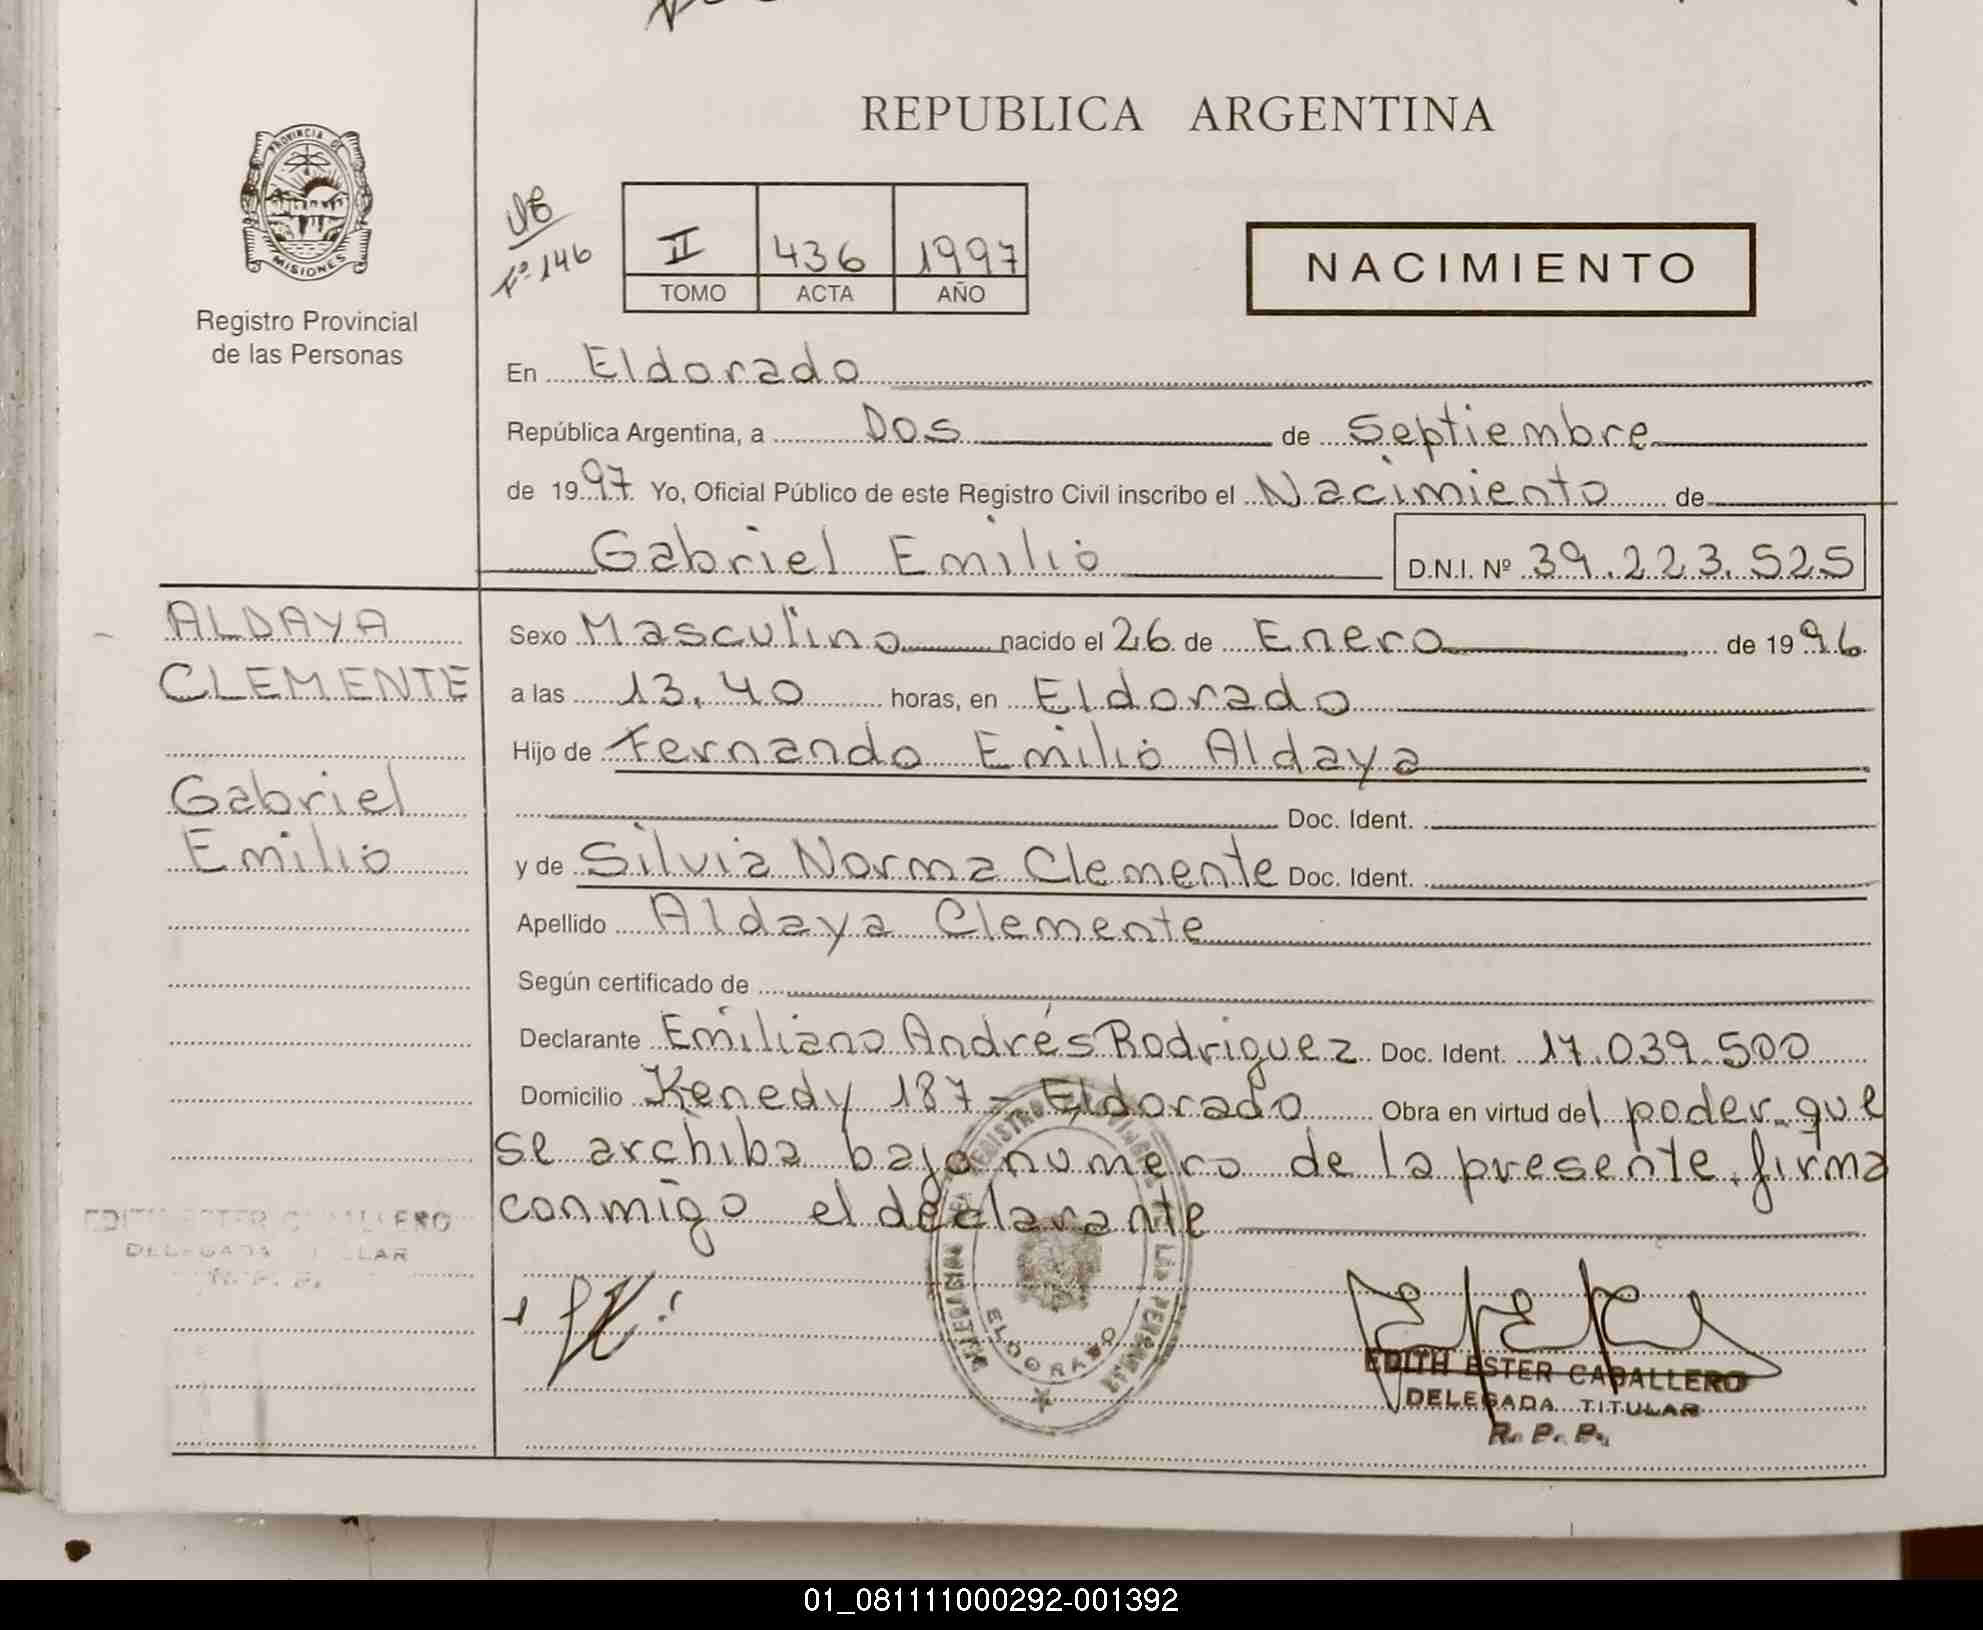 REPUBLICA ARGENTINA
PROVINCIA DE
MISIONES
Registro Provincial
de las Personas
Nº 146
II 436 1997
TOMO ACTA AÑO
NACIMIENTO
En Eldorado
República Argentina, a Dos de Septiembre
de 1997 Yo, Oficial Público de este Registro Civil inscribo el Nacimiento de
Gabriel Emilio D.N.I. Nº 39.223.525
ALDAYA
CLEMENTE
Gabriel
Emilio
Sexo Masculino nacido el 26 de Enero de 1996
a las 13.40 horas, en Eldorado
Hijo de Fernando Emilio Aldaya
Doc. Ident.
y de Silvia Norma Clemente Doc. Ident.
Apellido Aldaya Clemente
Según certificado de
Declarante Emiliano Andrés Rodriguez Doc. Ident. 17.039.500
Domicilio Kenedy 187 - Eldorado Obra en virtud del poder que
se archiba bajo numero de la presente. firma
conmigo el declarante
EDITH ESTER CABALLERO
DELEGADA TITULAR
R. P. P.
ELDORADO
EDITH ESTER CABALLERO
DELEGADA TITULAR
R. P. P.
01_081111000292-001392